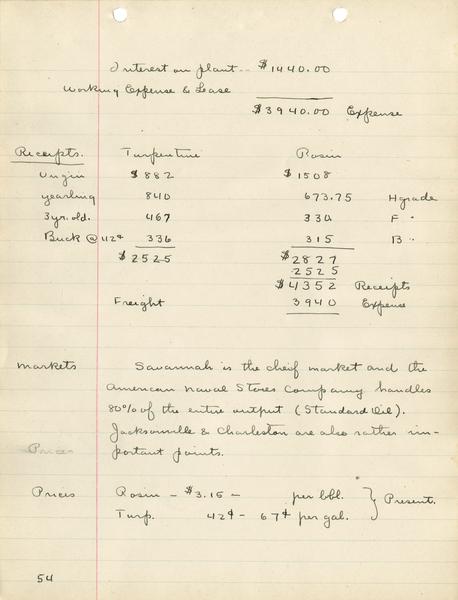 Interest on plant -- $1440.00
Working Expense & Lease
$3940.00 Expense
Receipts. Turpentine Rosin
Virgin $882 $1508
yearling 840 673.75 H grade
3yr. old. 467 330 F "
Buck @ 42¢ 336 315 B "
$2525 $2827
2525
$4352 Receipts
Freight 3940 Expense
Markets Savannah is the cheif market and the
American Naval Stores Company handles
80% of the entire output (Standard Oil).
Jacksonville & Charleston are also rather im-
Prices portant points.
Prices Rosin - $3.15 - per bbl. } Present.
Turp. 42¢ - 67¢ per gal.
54